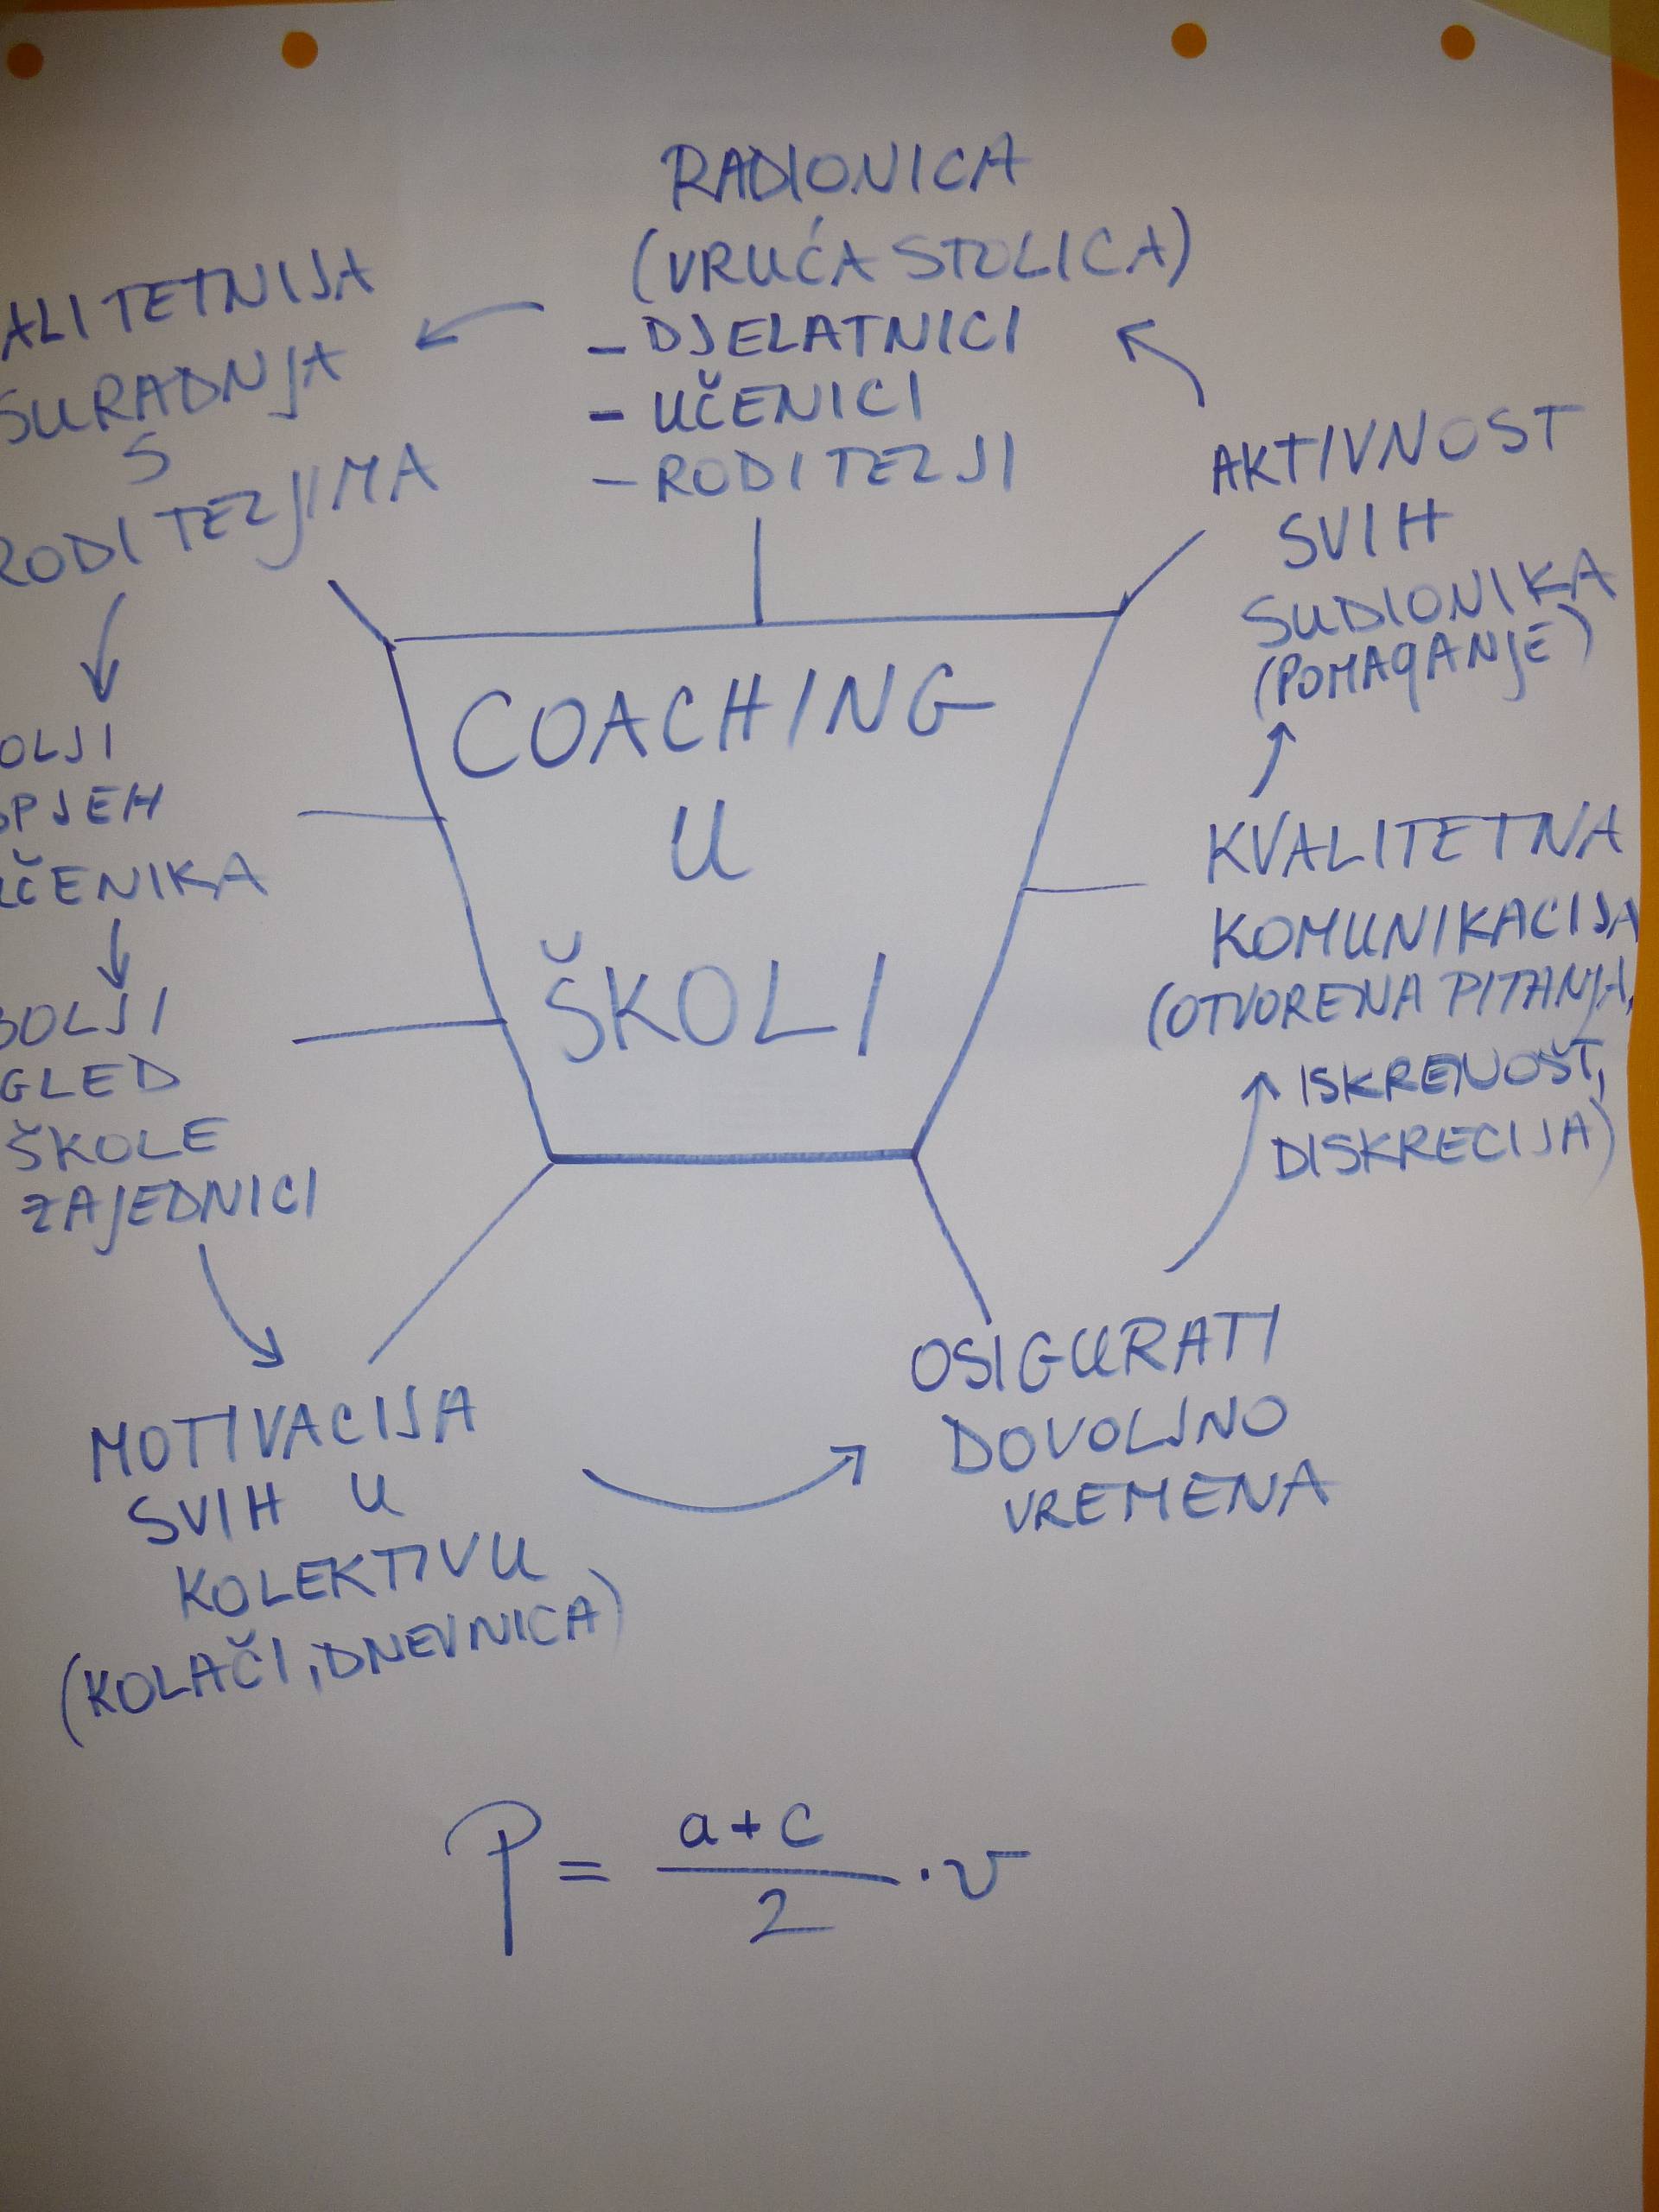 RADIONICA
(VRUĆA STOLICA)
- DJELATNICI
- UČENICI
- RODITELJI
ALITETNIJA
SURADNJA
S
RODITELJIMA
OLJI
SPJEH
UČENIKA
BOLJI
GLED
ŠKOLE
ZAJEDNICI
MOTIVACIJA
SVIH U
KOLEKTIVU
(KOLAČI, DNEVNICA)
OSIGURATI
DOVOLJNO
VREMENA
KVALITETNA
KOMUNIKACIJA
(OTVORENA PITANJA,
ISKRENOST,
DISKRECIJA)
AKTIVNOST
SVIH
SUDIONIKA
(POMAGANJE)
COACHING
U
ŠKOLI
P = a+c / 2 · v